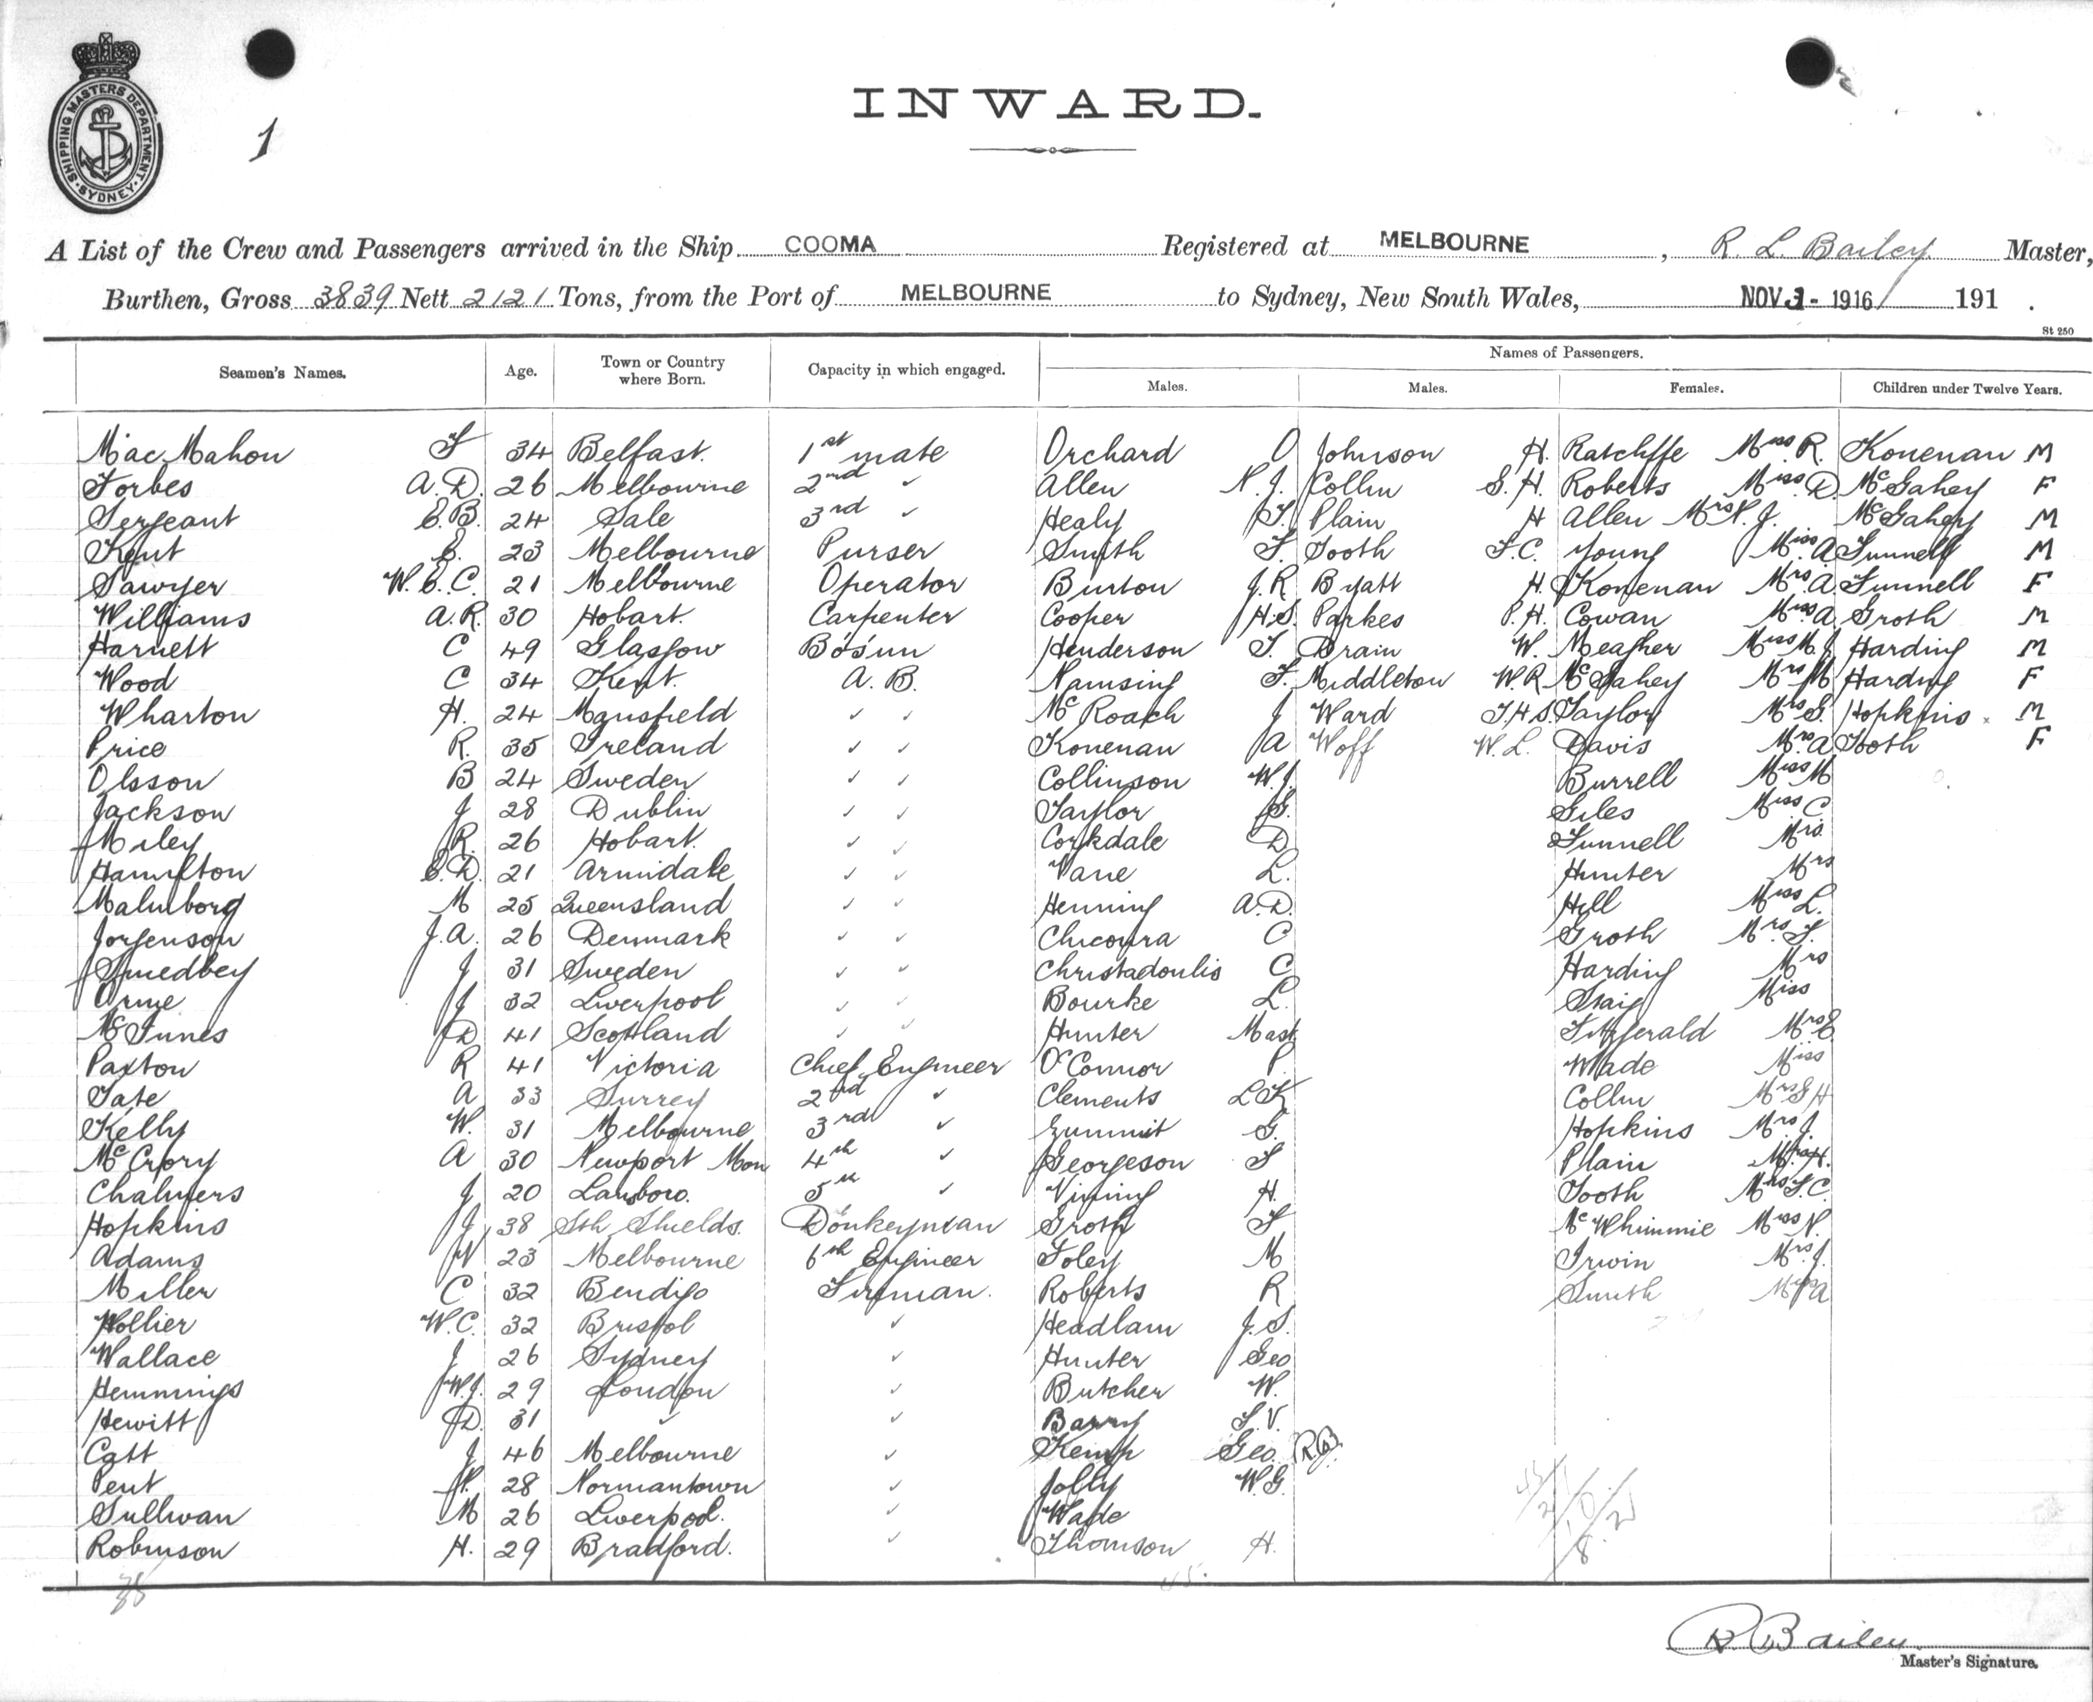 SHIPPING MASTERS DEPARTMENT. SYDNEY
1
INWARD.
A List of the Crew and Passengers arrived in the Ship COOMA Registered at MELBOURNE, R. L. Bailey Master,
Burthen, Gross 3839 Nett 2121 Tons, from the Port of MELBOURNE to Sydney, New South Wales, NOV 1 - 1916 191 .
St 250
Seamen's Names. Age. Town or Country where Born. Capacity in which engaged. Names of Passengers.
Males. Males. Females. Children under Twelve Years.
MacMahon F 34 Belfast. 1st mate Orchard O Johnson H. Ratcliffe Miss R. Konenan M
Forbes A. D. 26 Melbourne 2nd ✓ Allen N. J. Collin S. H. Roberts Miss D. McGahey F
Sergeant E. B. 24 Sale 3rd ✓ Healy Plain H Allen Mrs N. J. McGahey M
Kent E. 23 Melbourne Purser Smith F Tooth F. C. Young Miss A Funnell M
Sawyer W. E. C. 21 Melbourne Operator Burton J. R Byatt H. Konenan Mrs A. Funnell F
Williams A. R. 30 Hobart. Carpenter Cooper H. S. Parkes P. H. Cowan Miss A Groth M
Harnett C 49 Glasgow Bo'sun Henderson T. Drain W. Meagher Miss M. J Harding M
Wood C 34 Kent. A. B. Namsing F. Middleton W. R McGahey Mrs M Harding F
Wharton H. 24 Mansfield ✓ ✓ McRoach J Ward T. H. S. Taylor Mrs S. Hopkins M
Price R. 35 Ireland ✓ ✓ Konenan A Woff W. L. Davis Mrs A Tooth F
Olsson B 24 Sweden ✓ ✓ Collinson W. J. Burrell Miss M
Jackson J 28 Dublin ✓ ✓ Taylor G. Giles Miss C
Miley R. 26 Hobart. ✓ ✓ Corkdale D Funnell Mrs
Hamilton E. D. 21 Armidale ✓ ✓ Vane L. Hunter Mrs
Malmborg M 25 Queensland ✓ ✓ Henning A. D. Hill Miss L.
Jorgenson J. A. 26 Denmark ✓ ✓ C Groth Mrs F.
Smedbey J 31 Sweden ✓ ✓ Christadoulis C Harding Mrs
Orme J 32 Liverpool ✓ ✓ Bourke L. Staig Miss
McInnes D 41 Scotland ✓ ✓ Hunter Mast. Fitzgerald Mrs E.
Paxton R 41 Victoria Chief Engineer O'Connor P. Wade Miss
Tate A 33 Surrey 2nd ✓ Clements L K Collin Mrs S H
Kelly W. 31 Melbourne 3rd ✓ G. Hopkins Mrs J.
McCrory A 30 Newport Mon 4th ✓ Georgeson F Plain Mrs H.
Chalmers J 20 5th ✓ Vining H. Tooth Mrs F. C.
Hopkins J 38 Sth Shields. Donkeyman Groth F McWhimmie Miss N.
Adams N 23 Melbourne 6th Engineer Foley M Irwin Mrs J.
Miller C 32 Bendigo Fireman. Roberts R Smith A
Hollier W. C. 32 Bristol ✓ Headlam J. S.
Wallace J 26 Sydney ✓ Hunter Geo
Hemmings W. J. 29 London ✓ Butcher W.
Hewitt D. 31 ✓ ✓ Barry F. V.
Catt J 46 Melbourne ✓ Kemp Geo.
Pent H. 28 Normantown ✓ Jolly W. G.
Sullivan M 26 Liverpool. ✓ Wade
Robinson H. 29 Bradford. ✓ Thomson H.
R Bailey
Master's Signature.